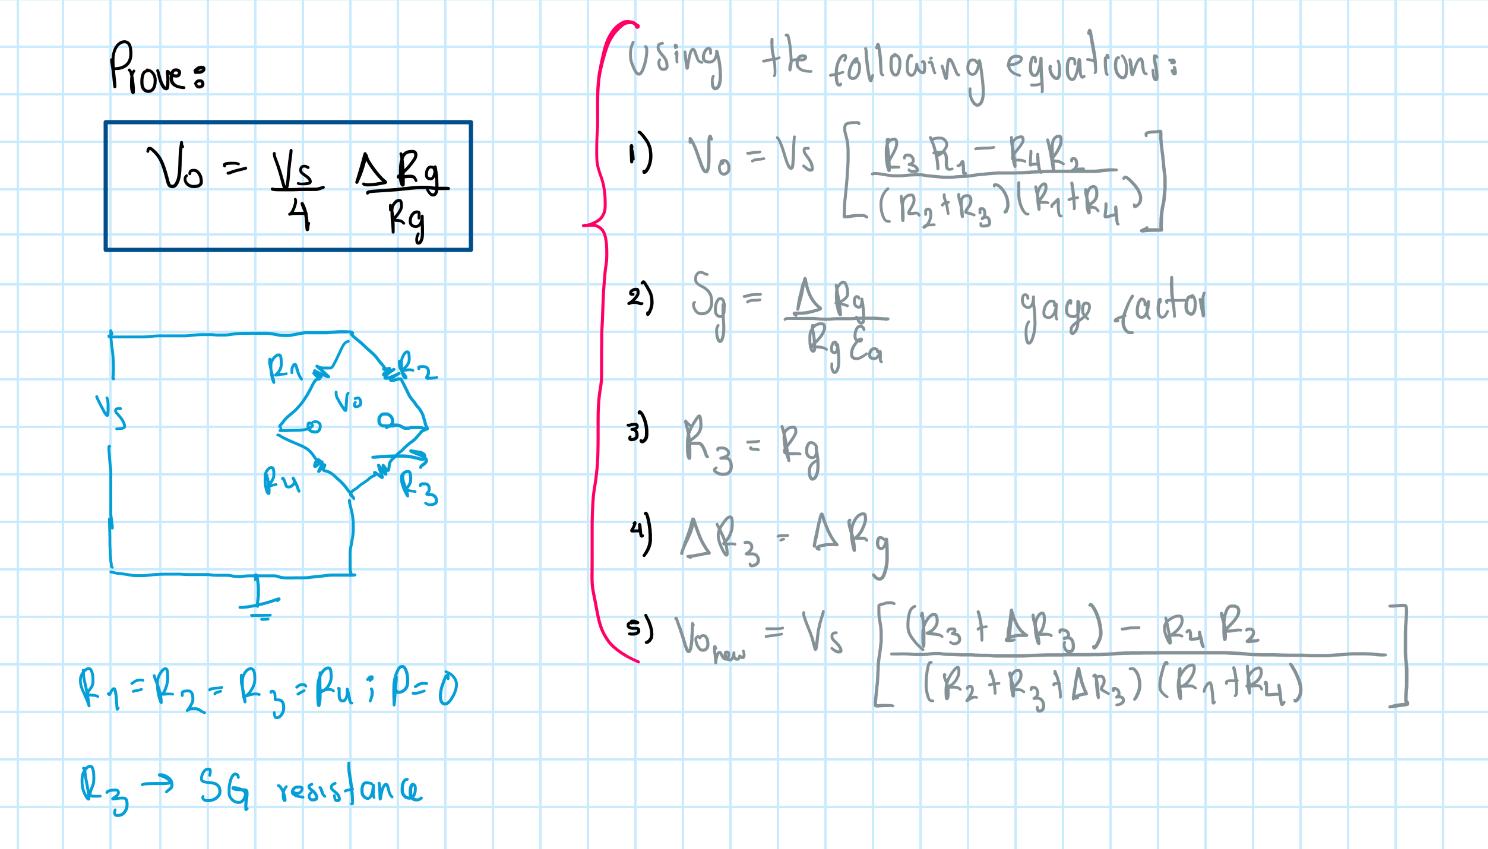 Prove:
Vo = Vs/4 ΔRg/Rg
R1
R2
Vo
Vs
R4
R3
R1 = R2 = R3 = R4 ; P = 0
R3 → SG resistance
Using the following equations:
1) Vo = Vs [ (R3 R1 - R4 R2) / ((R2 + R3)(R1 + R4)) ]
2) Sg = ΔRg / (Rg εa) gage factor
3) R3 = Rg
4) ΔR3 = ΔRg
5) Vo new = Vs [ ((R3 + ΔR3) - R4 R2) / ((R2 + R3 + ΔR3)(R1 + R4)) ]